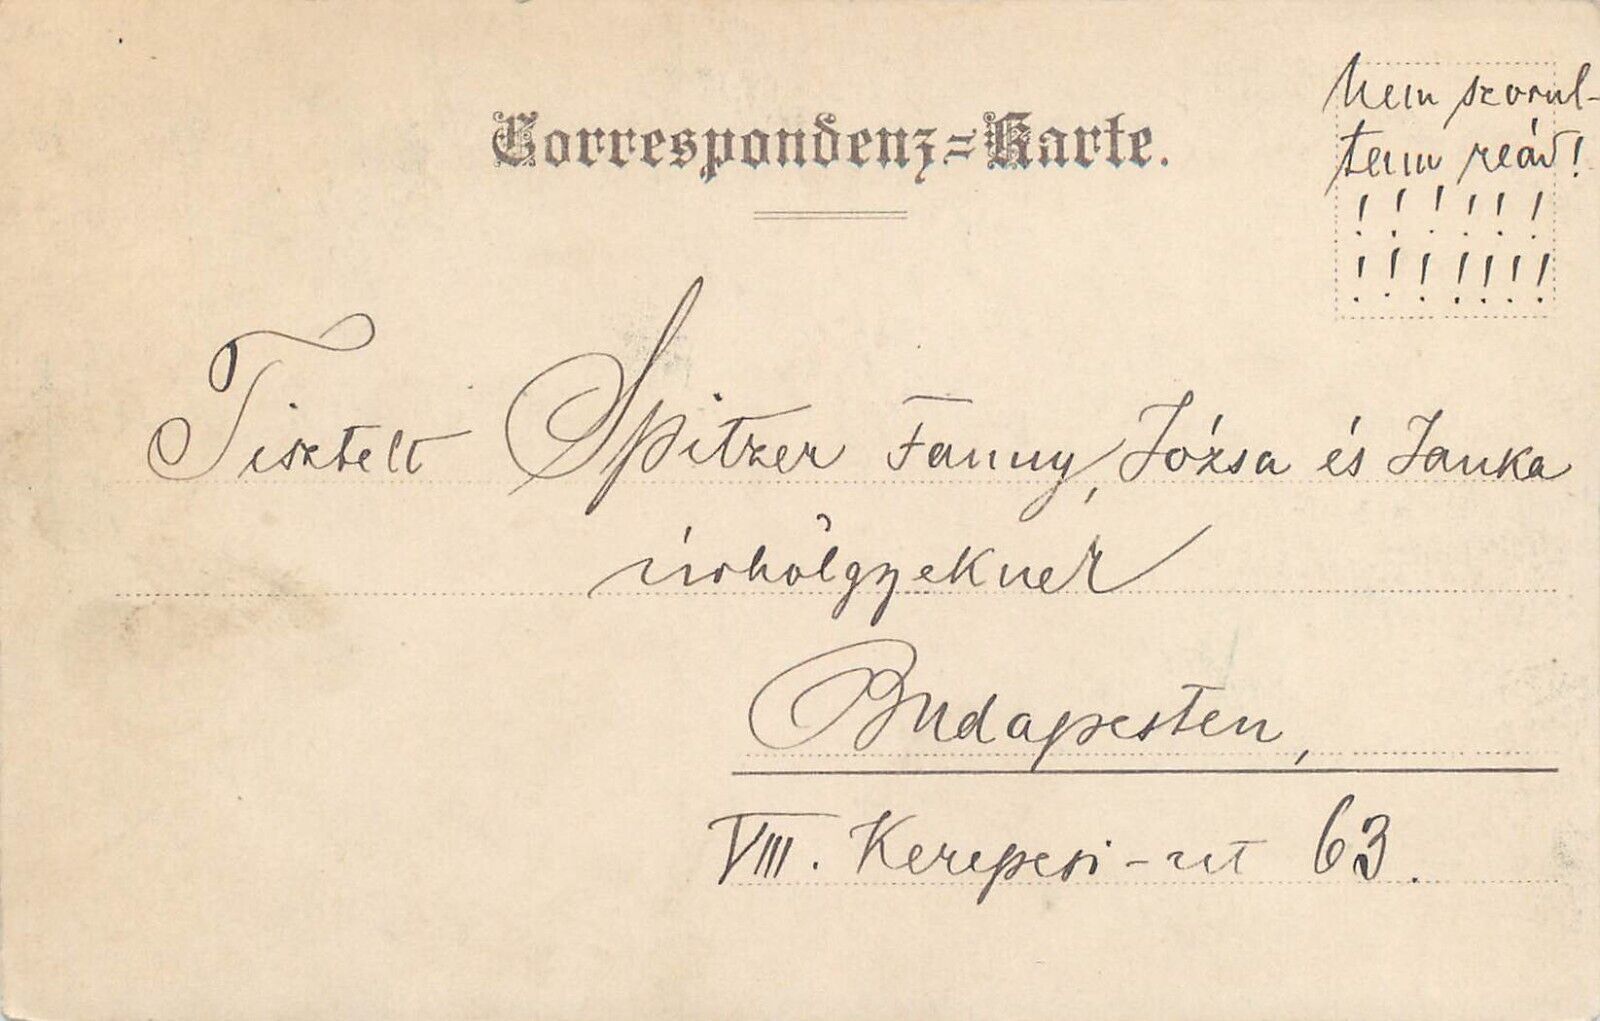 Correspondenz=Karte.
Nem szorul-
tam reád!
! ! ! ! ! !
! ! ! ! ! ! !
Tisztelt Spitzer Fanny, Józsa és Janka
úrhölgyeknek
Budapesten,
VIII. Kerepesi-út 63.